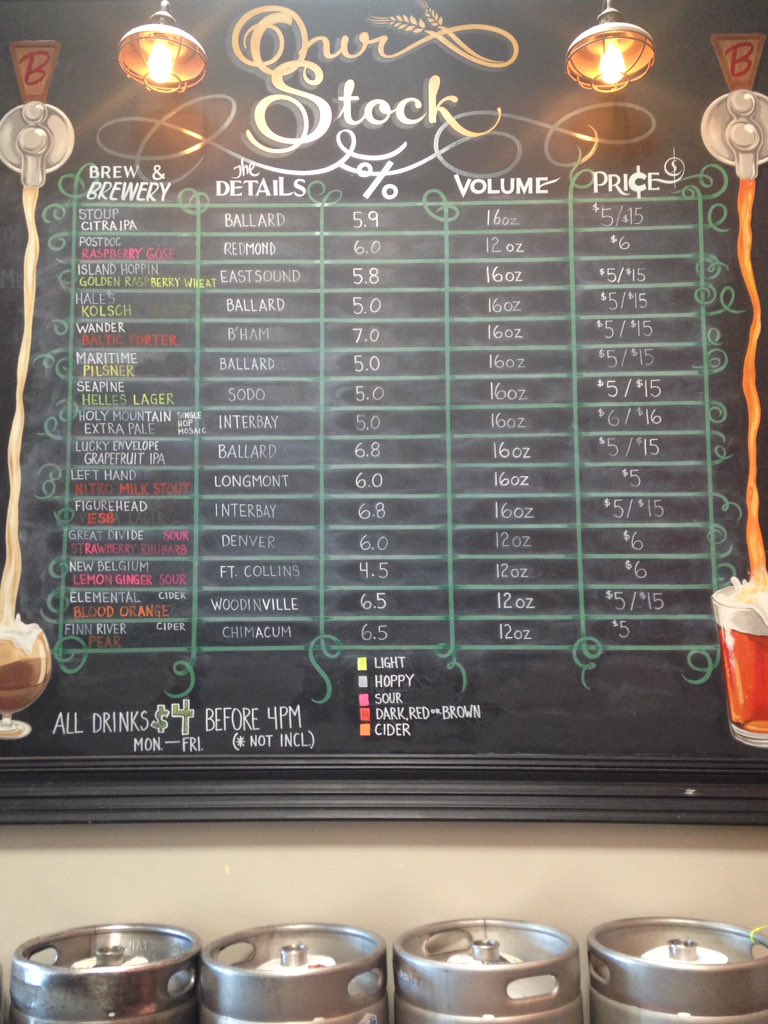 Our
Stock
B
B
BREW & BREWERY the DETAILS % VOLUME PRI¢E $
STOUP
CITRA IPA BALLARD 5.9 16oz $5/$15
POSTDOC
RASPBERRY GOSE REDMOND 6.0 12 oz $6
ISLAND HOPPIN
GOLDEN RASPBERRY WHEAT EASTSOUND 5.8 16oz $5/$15
HALE'S
KOLSCH BALLARD 5.0 16oz $5/$15
WANDER
BALTIC PORTER B'HAM 7.0 16oz $5/$15
MARITIME
PILSNER BALLARD 5.0 16oz $5/$15
SEAPINE
HELLES LAGER SODO 5.0 16oz $5/$15
HOLY MOUNTAIN SINGLE HOP MOSAIC
EXTRA PALE INTERBAY 5.0 16oz $6/$16
LUCKY ENVELOPE
GRAPEFRUIT IPA BALLARD 6.8 16oz $5/$15
LEFT HAND
NITRO MILK STOUT LONGMONT 6.0 16oz $5
FIGUREHEAD
ESB INTERBAY 6.8 16oz $5/$15
GREAT DIVIDE SOUR
STRAWBERRY RHUBARB DENVER 6.0 12oz $6
NEW BELGIUM
LEMON GINGER SOUR FT. COLLINS 4.5 12oz $6
ELEMENTAL CIDER
BLOOD ORANGE WOODINVILLE 6.5 12oz $5/$15
FINN RIVER CIDER
PEAR CHIMACUM 6.5 12oz $5
LIGHT
HOPPY
SOUR
DARK, RED OR BROWN
CIDER
ALL DRINKS $4 BEFORE 4PM
MON.—FRI. (* NOT INCL.)